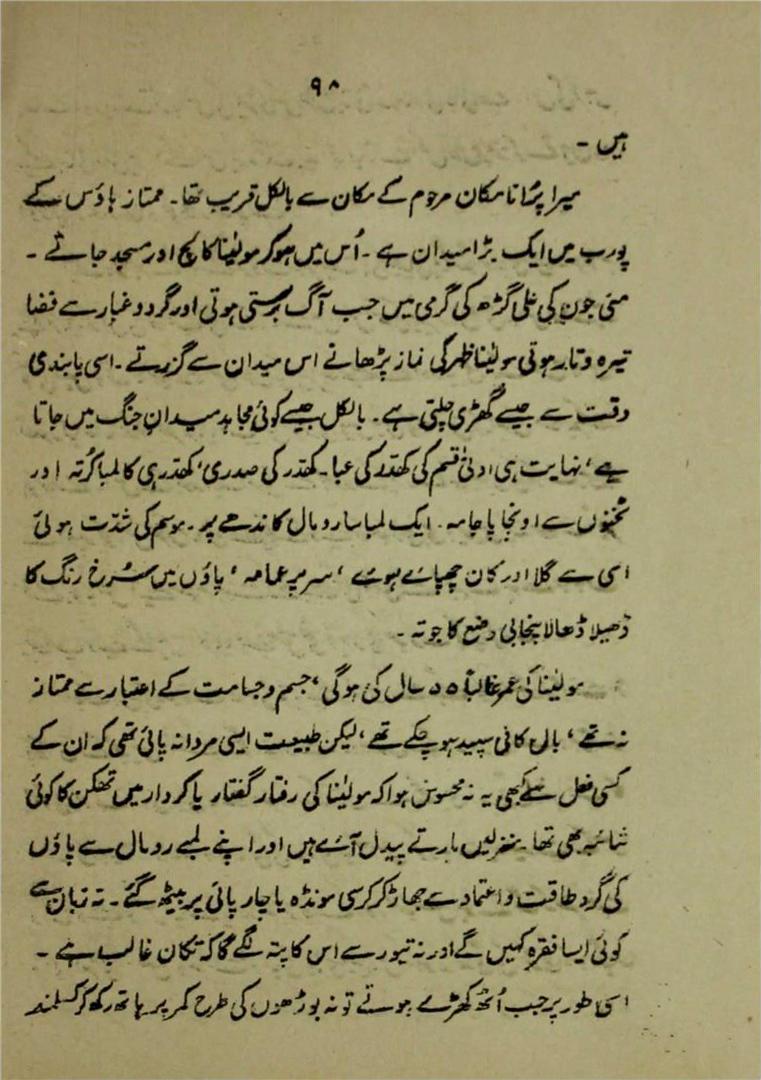 ۹۸
ہیں -
میرا پُرانا مکان مرحوم کے مکان سے بالکل قریب تھا۔ ممتاز ہاؤس کے
پورب میں ایک بڑا میدان ہے ۔ اُس میں ہو کر مولینا کالج اور مسجد جاتے ۔
مئی جون کی علی گڑھ کی گرمی میں جب آگ برستی ہوتی اور گرد و غبار سے فضا
تیرہ و تار ہوتی مولینا ظہر کی نماز پڑھانے اس میدان سے گزرتے ۔ اسی پابندی
وقت سے جیسے گھڑی چلتی ہے ۔ بالکل جیسے کوئی مجاہد میدانِ جنگ میں جاتا
ہے ، نہایت ہی ادنیٰ قسم کی کھدّر کی عبا ۔ کھدّر کی صدری ، کھدّر ہی کا لمبا کُرتہ اور
ٹخنوں سے اونچا پاجامہ ۔ ایک لمبا سا رومال کاندھے پر ۔ موسم کی شدّت ہوئی
اسی سے گلا اور کان چھپائے ہوئے ، سر پر عمامہ ، پاؤں میں سُرخ رنگ کا
ڈھیلا ڈھالا پنجابی وضع کا جوتہ ۔
مولینا کی عمر غالباً ۵۵ سال کی ہوگی ، جسم و جسامت کے اعتبار سے ممتاز
نہ تھے ، بال کافی سپید ہو چکے تھے ، لیکن طبیعت ایسی مردانہ پائی تھی کہ ان کے
کسی فعل سے کبھی یہ نہ محسوس ہوا کہ مولینا کی رفتار گفتار یا کردار میں تھکن کا کوئی
شائبہ بھی تھا ۔ منزلیں مارتے پیدل آئے ہیں اور اپنے لمبے رومال سے پاؤں
کی گرد طاقت و اعتماد سے جھاڑ کر کرسی مونڈہ یا چارپائی پر بیٹھ گئے ۔ نہ زبان سے
کوئی ایسا فقرہ کہیں گے اور نہ تیور سے اس کا پتہ لگے گا کہ تکان غالب ہے ۔
اسی طور پر جب اُٹھ کھڑے ہوتے تو نہ بوڑھوں کی طرح کمر پر ہاتھ رکھ کر کسلمند